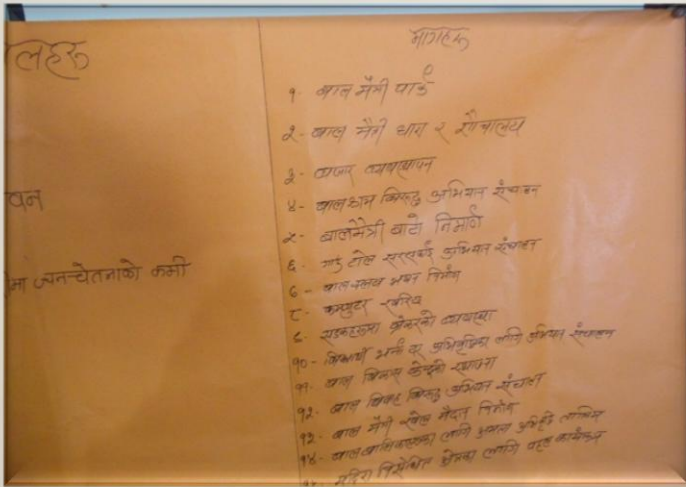 लहरु
वन
मा जनचेतनाको कमी
मागहरु
१- बाल मैत्री पार्क
२- बाल मैत्री धारा र शौचालय
३- बजार व्यवस्थापन
४- बालश्रम विरुद्ध अभियान संचालन
५- बालमैत्री बाटो निर्माण
६- गाउँ टोल सरसफाई अभियान संचालन
७- बालक्लव भवन निर्माण
८- कम्प्युटर खरिद
९- सडकहरुमा व्रेकरको व्यवस्था
१०- विद्यार्थी भर्ना दर अभिवृद्धिका लागि अभियान संचालन
११- बाल विकास केन्द्रको स्थापना
१२- बाल विवाह विरुद्ध अभियान संचालन
१३- बाल मैत्री खेल मैदान निर्माण
१४- बालबालिकाहरुका लागि क्षमता अभिवृद्धि तालिम
१५- मदिरा निषेधित क्षेत्रका लागि पहल कार्यक्रम